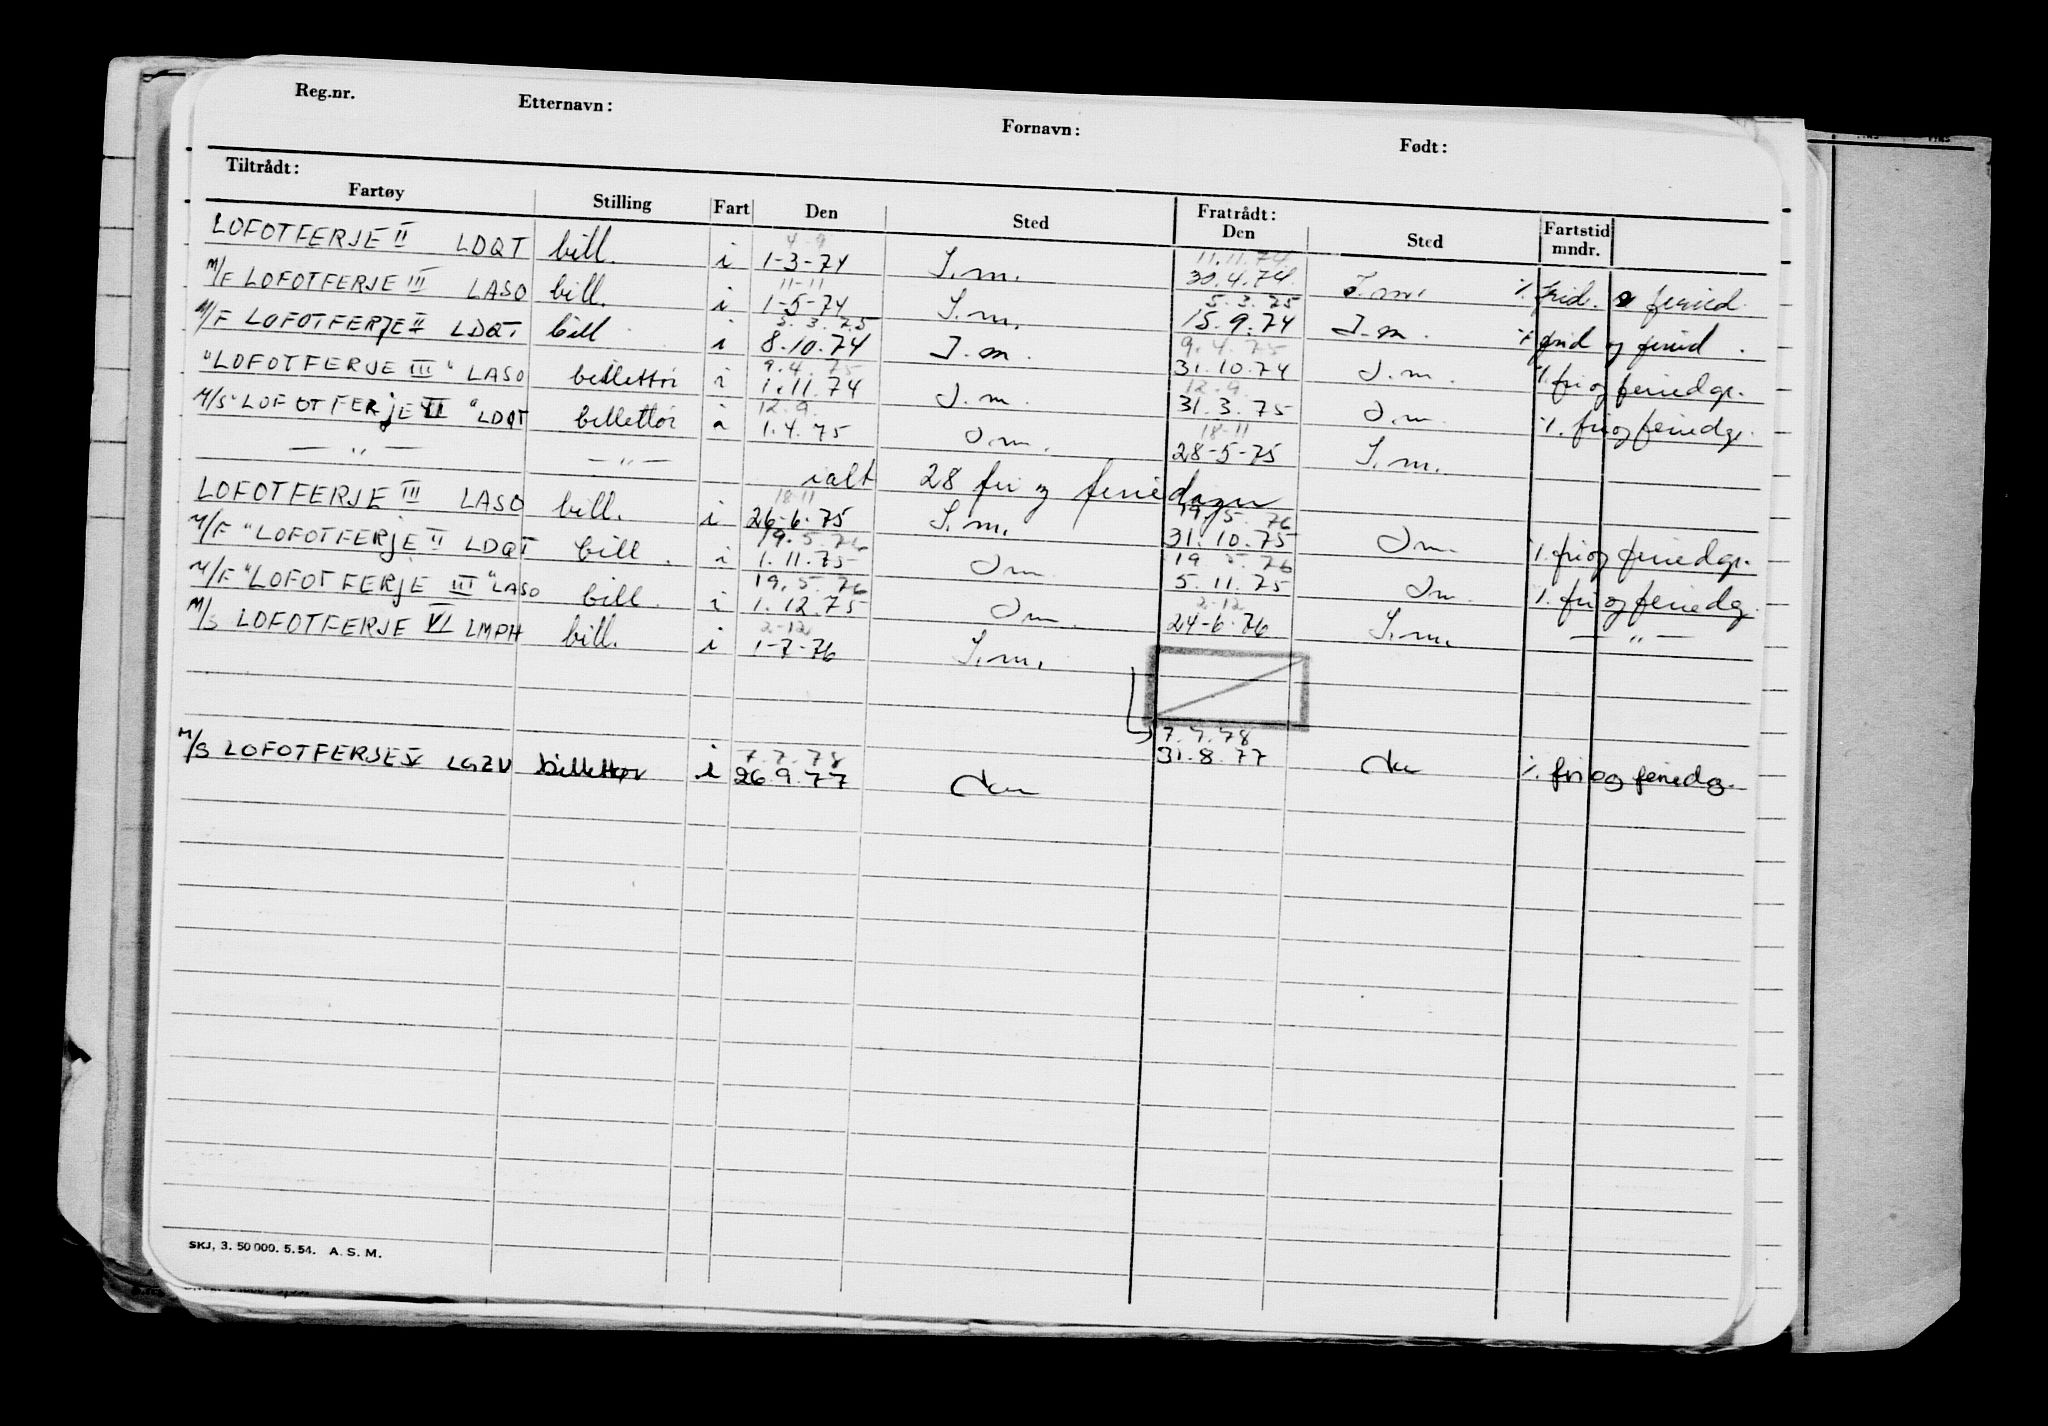 Reg.nr. Etternavn: Fornavn: Født:
Tiltrådt: Fratrådt:
Fartøy Stilling Fart Den Sted Den Sted Fartstid mndr.
4-9 11.11.74
LOFOTFERJE II LDQT bill. i 1-3-74 S.m. 30.4.74. S.m. %. frid. og feried.
11-11 5.3.75
M/F LOFOTFERJE III LASO bill. i 1-5-74 S.m. 15.9.74 S.m. % frid og feried.
5.3.75 9.4.75
M/F LOFOTFERJE II LDQT bill i 8.10.74 S.m. 31.10.74 S.m. %. fri og feriedgr.
9.4.75 12.9
"LOFOTFERJE III" LASO billettør i 1.11.74 S.m. 31.3.75 S.m. %. fri og feriedgr.
12.9. 18-11
M/S "LOFOTFERJE II" LDQT billettør i 1.4.75 S.m. 28-5-75 S.m.
— " — — " —
ialt 28 fri og feriedager
18-11 19.5.76
LOFOTFERJE III LASO bill. i 26-6-75 S.m. 31.10.75 S.m. %. fri og feriedgr.
19.5.76 19.5.76
M/F "LOFOTFERJE II LDQT bill. i 1.11.75 S.m. 5.11.75 S.m. %. fri og feriedg.
19.5.76 2-12
M/F "LOFOTFERJE III" LASO bill. i 1.12.75 S.m. 24-6-76 S.m. — " —
2-12
M/S LOFOTFERJE VI LMPH bill. i 1-7-76 S.m.
7.7.78 7.7.78
31.8.77 %. fri og feriedg.
M/S LOFOTFERJE V LGZV billettør i 26.9.77
SKJ, 3. 50 000. 5. 54. A. S. M.